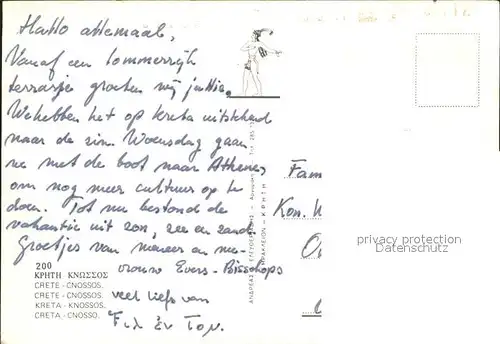 Hallo allemaal,
Vanaf een lommerrijk
terrasje groeten wij jullie.
We hebben het op kreta uitstekend
naar de zin. Woensdag gaan
we met de boot naar Athene,
om nog meer cultuur op te
doen. Tot nu bestond de
vakantie uit zon, zee en zand.
Groetjes van meneer en me-
vrouw Evers - Bisschops
veel liefs van
200
ΚΡΗΤΗ ΚΝΩΣΣΟΣ
CRETE - CNOSSOS.
CRETE - CNOSSOS.
KRETA - KNOSSOS.
CRETA - CNOSSO.
Fam
Kon.
privacy protection
Datenschutz